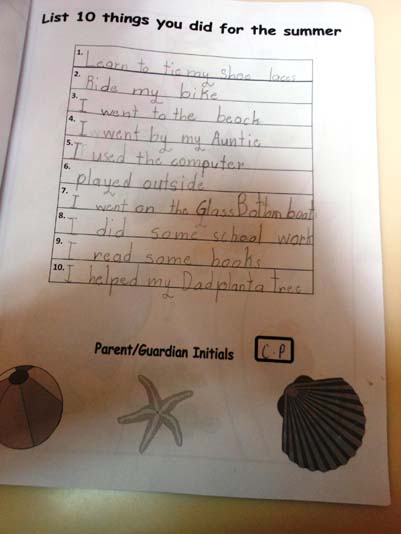 List 10 things you did for the summer
1. Learn to tie my shoe laces
2. Ride my bike
3. I went to the beach
4. I went by my Auntie
5. I used the computer
6. played outside
7. I went on the Glass Bottom boat
8. I did some school work
9. I read some books
10. I helped my Dad plant a tree
Parent/Guardian Initials C.P